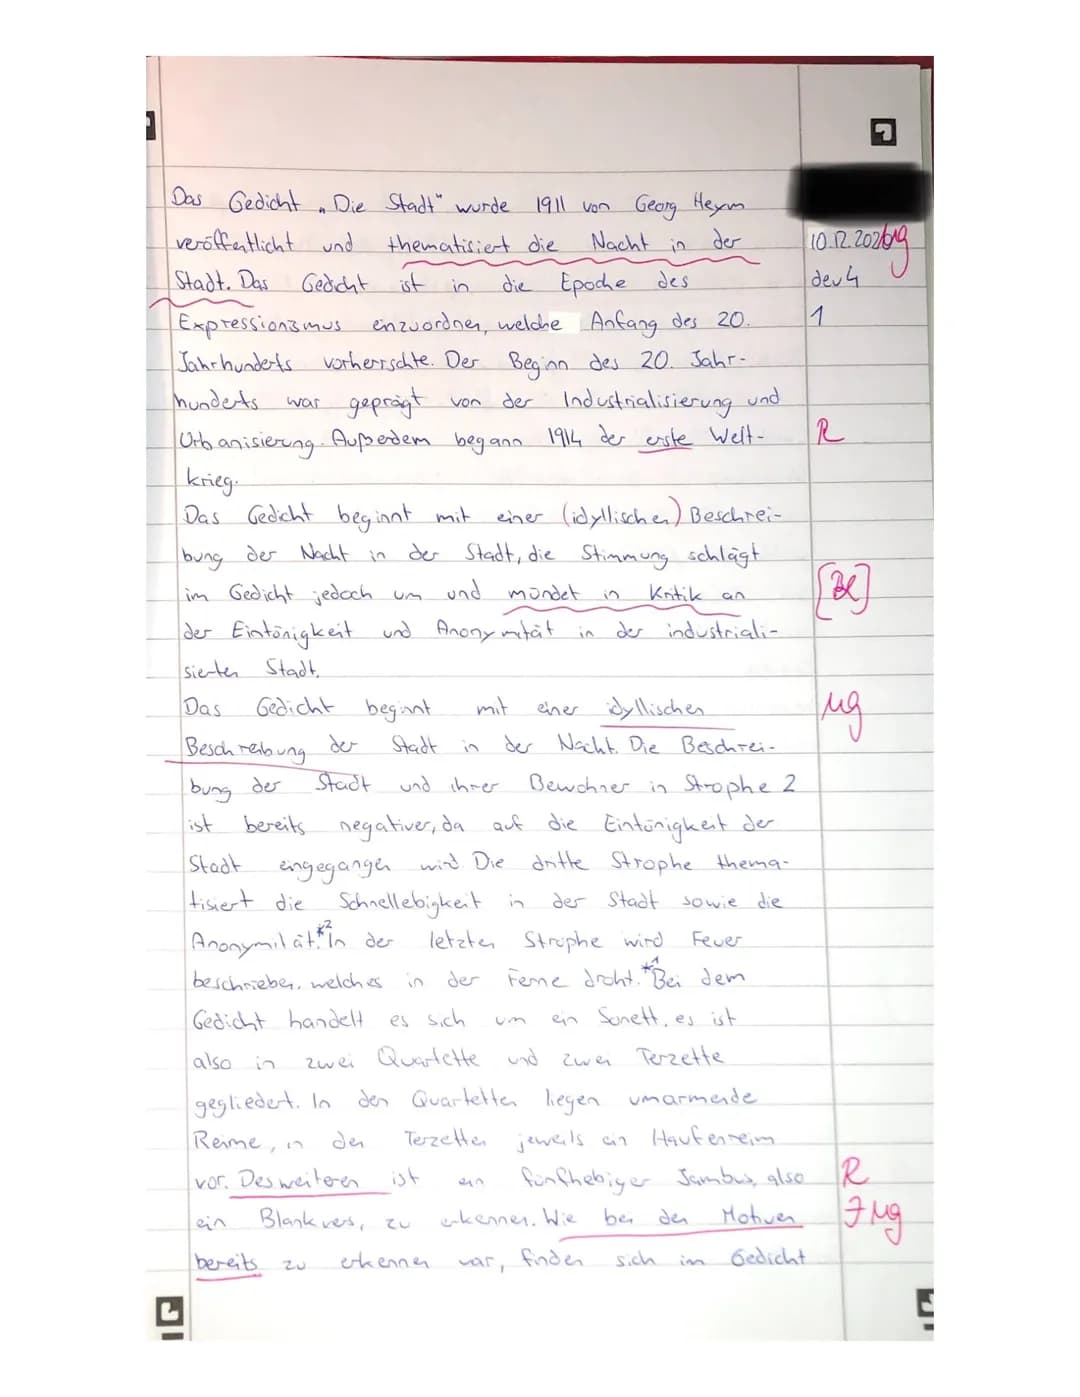 Das Gedicht „Die Stadt" wurde 1911 von Georg Heym
veröffentlicht und thematisiert die Nacht in der
10.12.202
ug
Stadt. Das Gedicht ist in die Epoche des
deu4
Expressionismus einzuordnen, welche Anfang des 20.
1
Jahrhunderts vorherrschte. Der Beginn des 20. Jahr-
hunderts war geprägt von der Industrialisierung und
Urbanisierung. Außerdem begann 1914 der erste Welt-
R
krieg.
Das Gedicht beginnt mit einer (idyllischen) Beschrei-
bung der Nacht in der Stadt, die Stimmung schlägt
im Gedicht jedoch um und mündet in Kritik an
der Eintönigkeit und Anonymität in der industriali-
sierten Stadt.
Das Gedicht beginnt mit einer idyllischen
ug
Beschreibung der Stadt in der Nacht. Die Beschrei-
bung der Stadt und ihrer Bewohner in Strophe 2
ist bereits negativer, da auf die Eintönigkeit der
Stadt eingegangen wird. Die dritte Strophe thema-
tisiert die Schnellebigkeit in der Stadt sowie die
Anonymität.*2 In der letzten Strophe wird Feuer
beschrieben, welches in der Ferne droht.*1 Bei dem
Gedicht handelt es sich um ein Sonett, es ist
also in zwei Quartette und zwei Terzette
gegliedert. In den Quartetten liegen umarmende
Reime, in den Terzetten jeweils ein Haufenreim
vor. Desweiteren ist ein fünfhebiger Jambus, also
R
ein Blankvers, zu erkennen. Wie bei den Motiven
ug
bereits zu erkennen war, finden sich im Gedicht